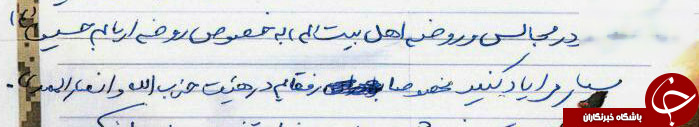 در مجالس و روضه اهل بیت الـ، به خصوص روضه اربابم حسین (ع)
بسیار مرا یاد کنید مخصوصا رفقایم در هیئت حزب الله و انصار المهدی.
باشگاه خبرنگاران